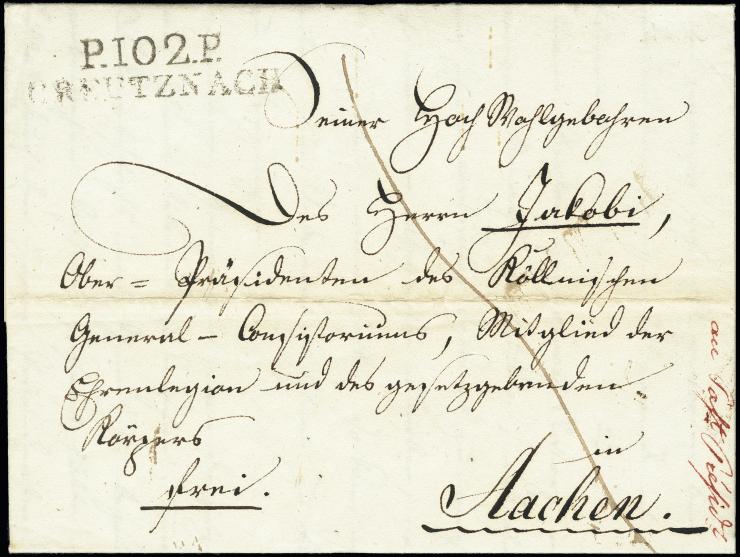 P.102.P.
CREUTZNACH
Seiner HochWohlgebohren
Des Herrn Jakobi,
Ober = Präsidenten des Köllnischen
General - Consistoriums, Mitglied der
Ehrenlegion und des gesetzgebenden
Körpers
frei.
in
Aachen.
an